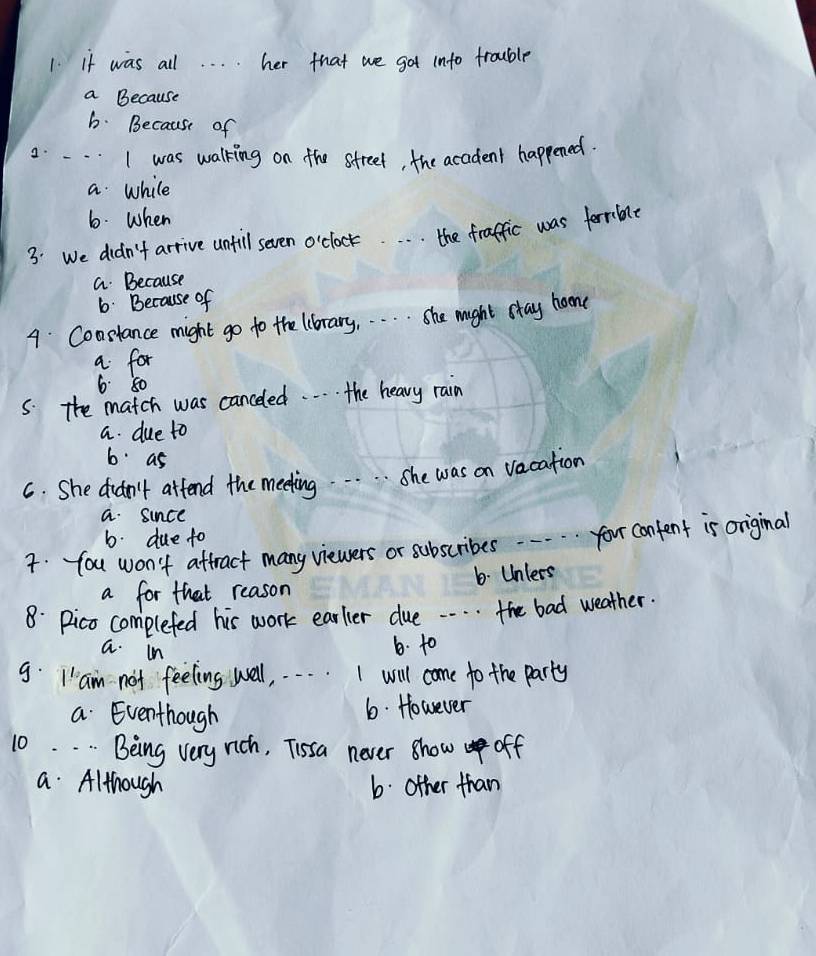 1. it was all .... her that we got into trouble
a Because
b. Because of
2. .... I was walking on the street, the accident happened.
a. While
b. When
3. We didn't arrive untill seven o'clock .... the traffic was terrible
a. Because
b. Because of
4. Constance might go to the library, .... she might stay home
a. for
b. so
5. The match was canceled .... the heavy rain
a. due to
b. as
6. She didn't attend the meeting ..... she was on vacation
a. since
b. due to
7. You won't attract many viewers or subscribes ----. your content is original
a for that reason b. Unless
8. Rico completed his work earlier due .... the bad weather.
a. In b. to
9. I'am not feeling well, .... I will come to the party
a. Eventhough b. However
10 .... Being very rich, Tissa never show off
a. Although b. other than